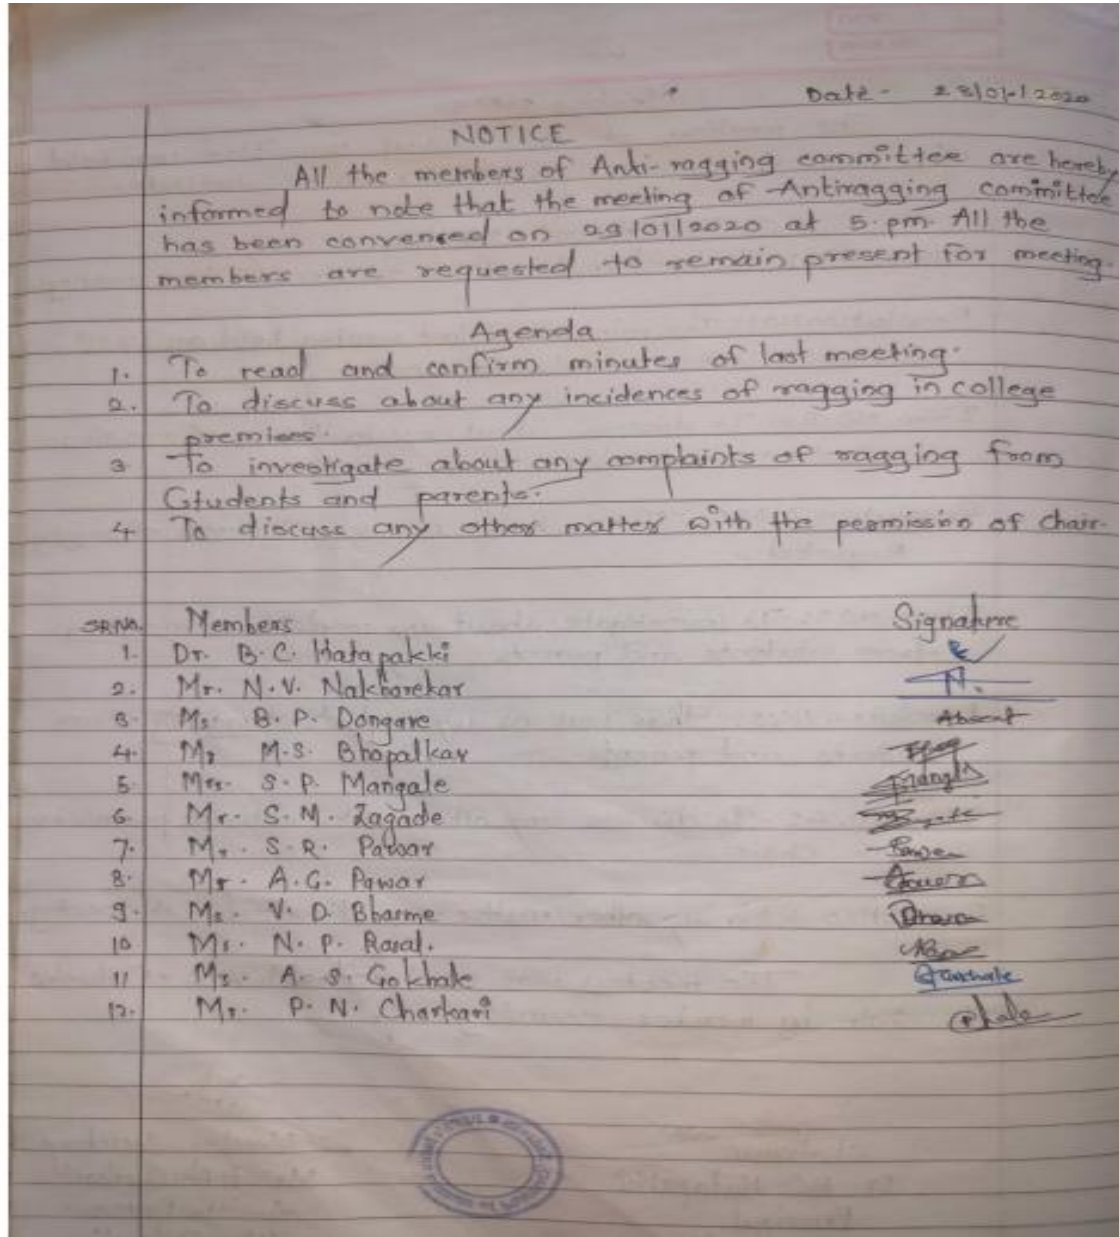 Date - 28/01/2020
NOTICE
All the members of Anti-ragging committee are hereby
informed to note that the meeting of Antiragging committee
has been convensed on 29/01/2020 at 5.pm. All the
members are requested to remain present for meeting.
Agenda
1. To read and confirm minutes of last meeting.
2. To discuss about any incidences of ragging in college
premises.
3 To investigate about any complaints of ragging from
Students and parents.
4 To discuss any other matter with the permission of chair.
SR.NO. Members Signature
1. Dr. B.C. Hatapakki
2. Mr. N.V. Nakharekar N.
3. Ms. B.P. Dongare Absent
4. Mr M.S. Bhopalkar
5. Mrs. S.P. Mangale
6. Mr. S.M. Zagade
7. Mr. S.R. Pawar
8. Mr. A.G. Pawar
9. Ms. V.D. Bharme
10 Mr. N.P. Rasal.
11 Ms. A.S. Gokhale
12. Mr. P.N. Charkari